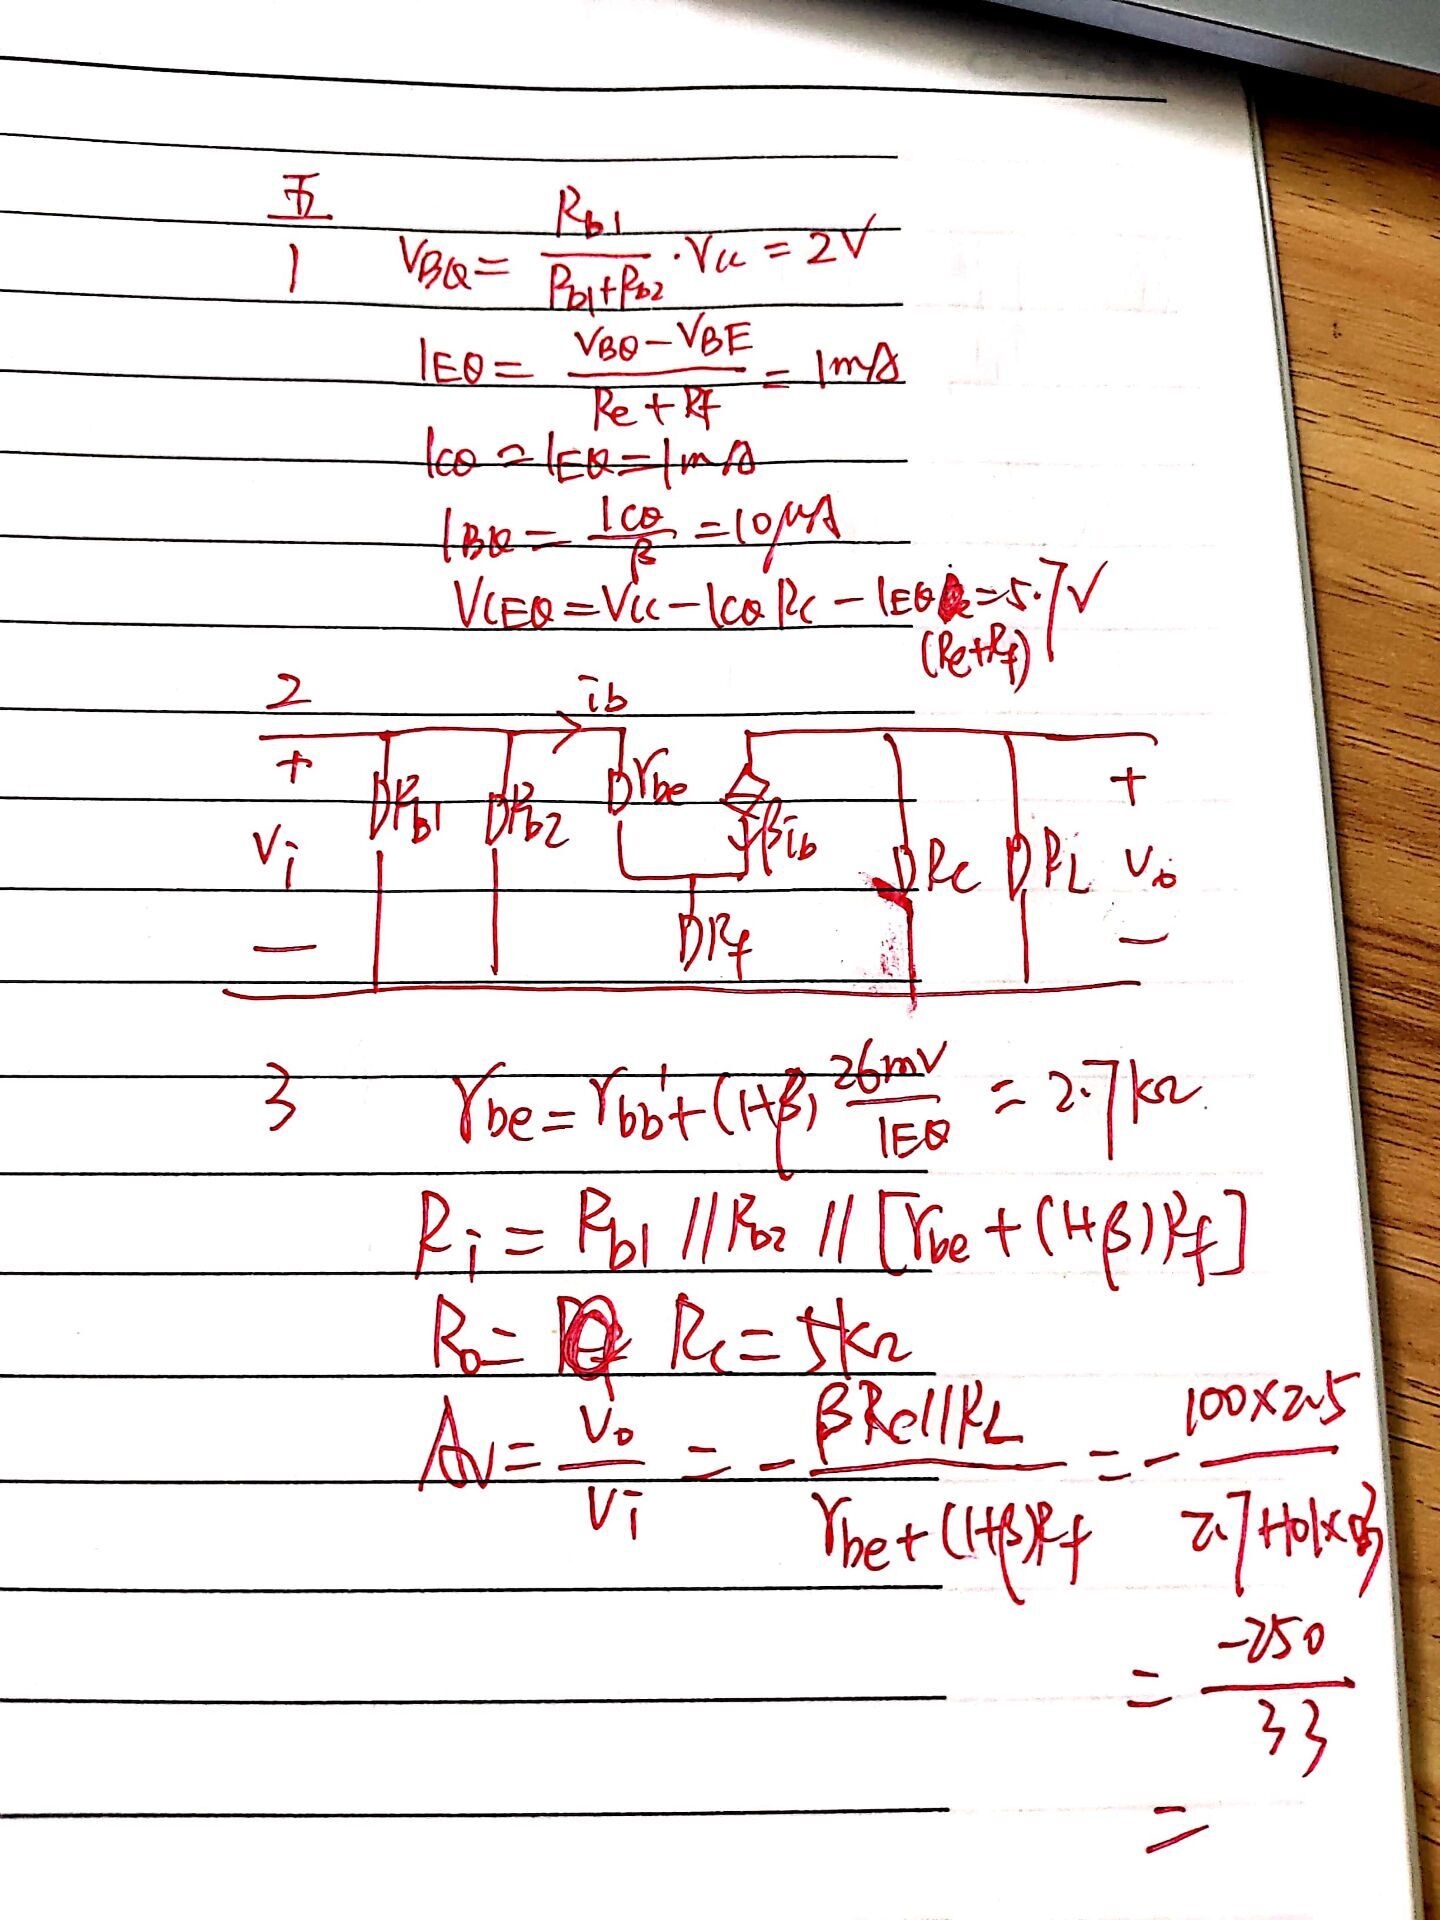 五
1 V_BQ = R_b1 / (R_b1 + R_b2) · V_CC = 2V
I_EQ = (V_BQ − V_BE) / (R_e + R_f) = 1mA
I_CQ ≈ I_EQ = 1mA
I_BQ = I_CQ / β = 10μA
V_CEQ = V_CC − I_CQ R_C − I_EQ (R_e + R_f) = 5.7V
2 i_b
+ R_b1 R_b2 r_be βi_b R_C R_L +
V_i R_f V_o
− −
3 r_be = r_bb' + (1+β) 26mV / I_EQ = 2.7kΩ
R_i = R_b1 // R_b2 // [r_be + (1+β)R_f]
R_o = R_c = 5kΩ
A_V = V_o / V_i = − βR_c//R_L / (r_be + (1+β)R_f) = − 100×2.5 / (2.7+101×0.3)
= −250 / 33
=